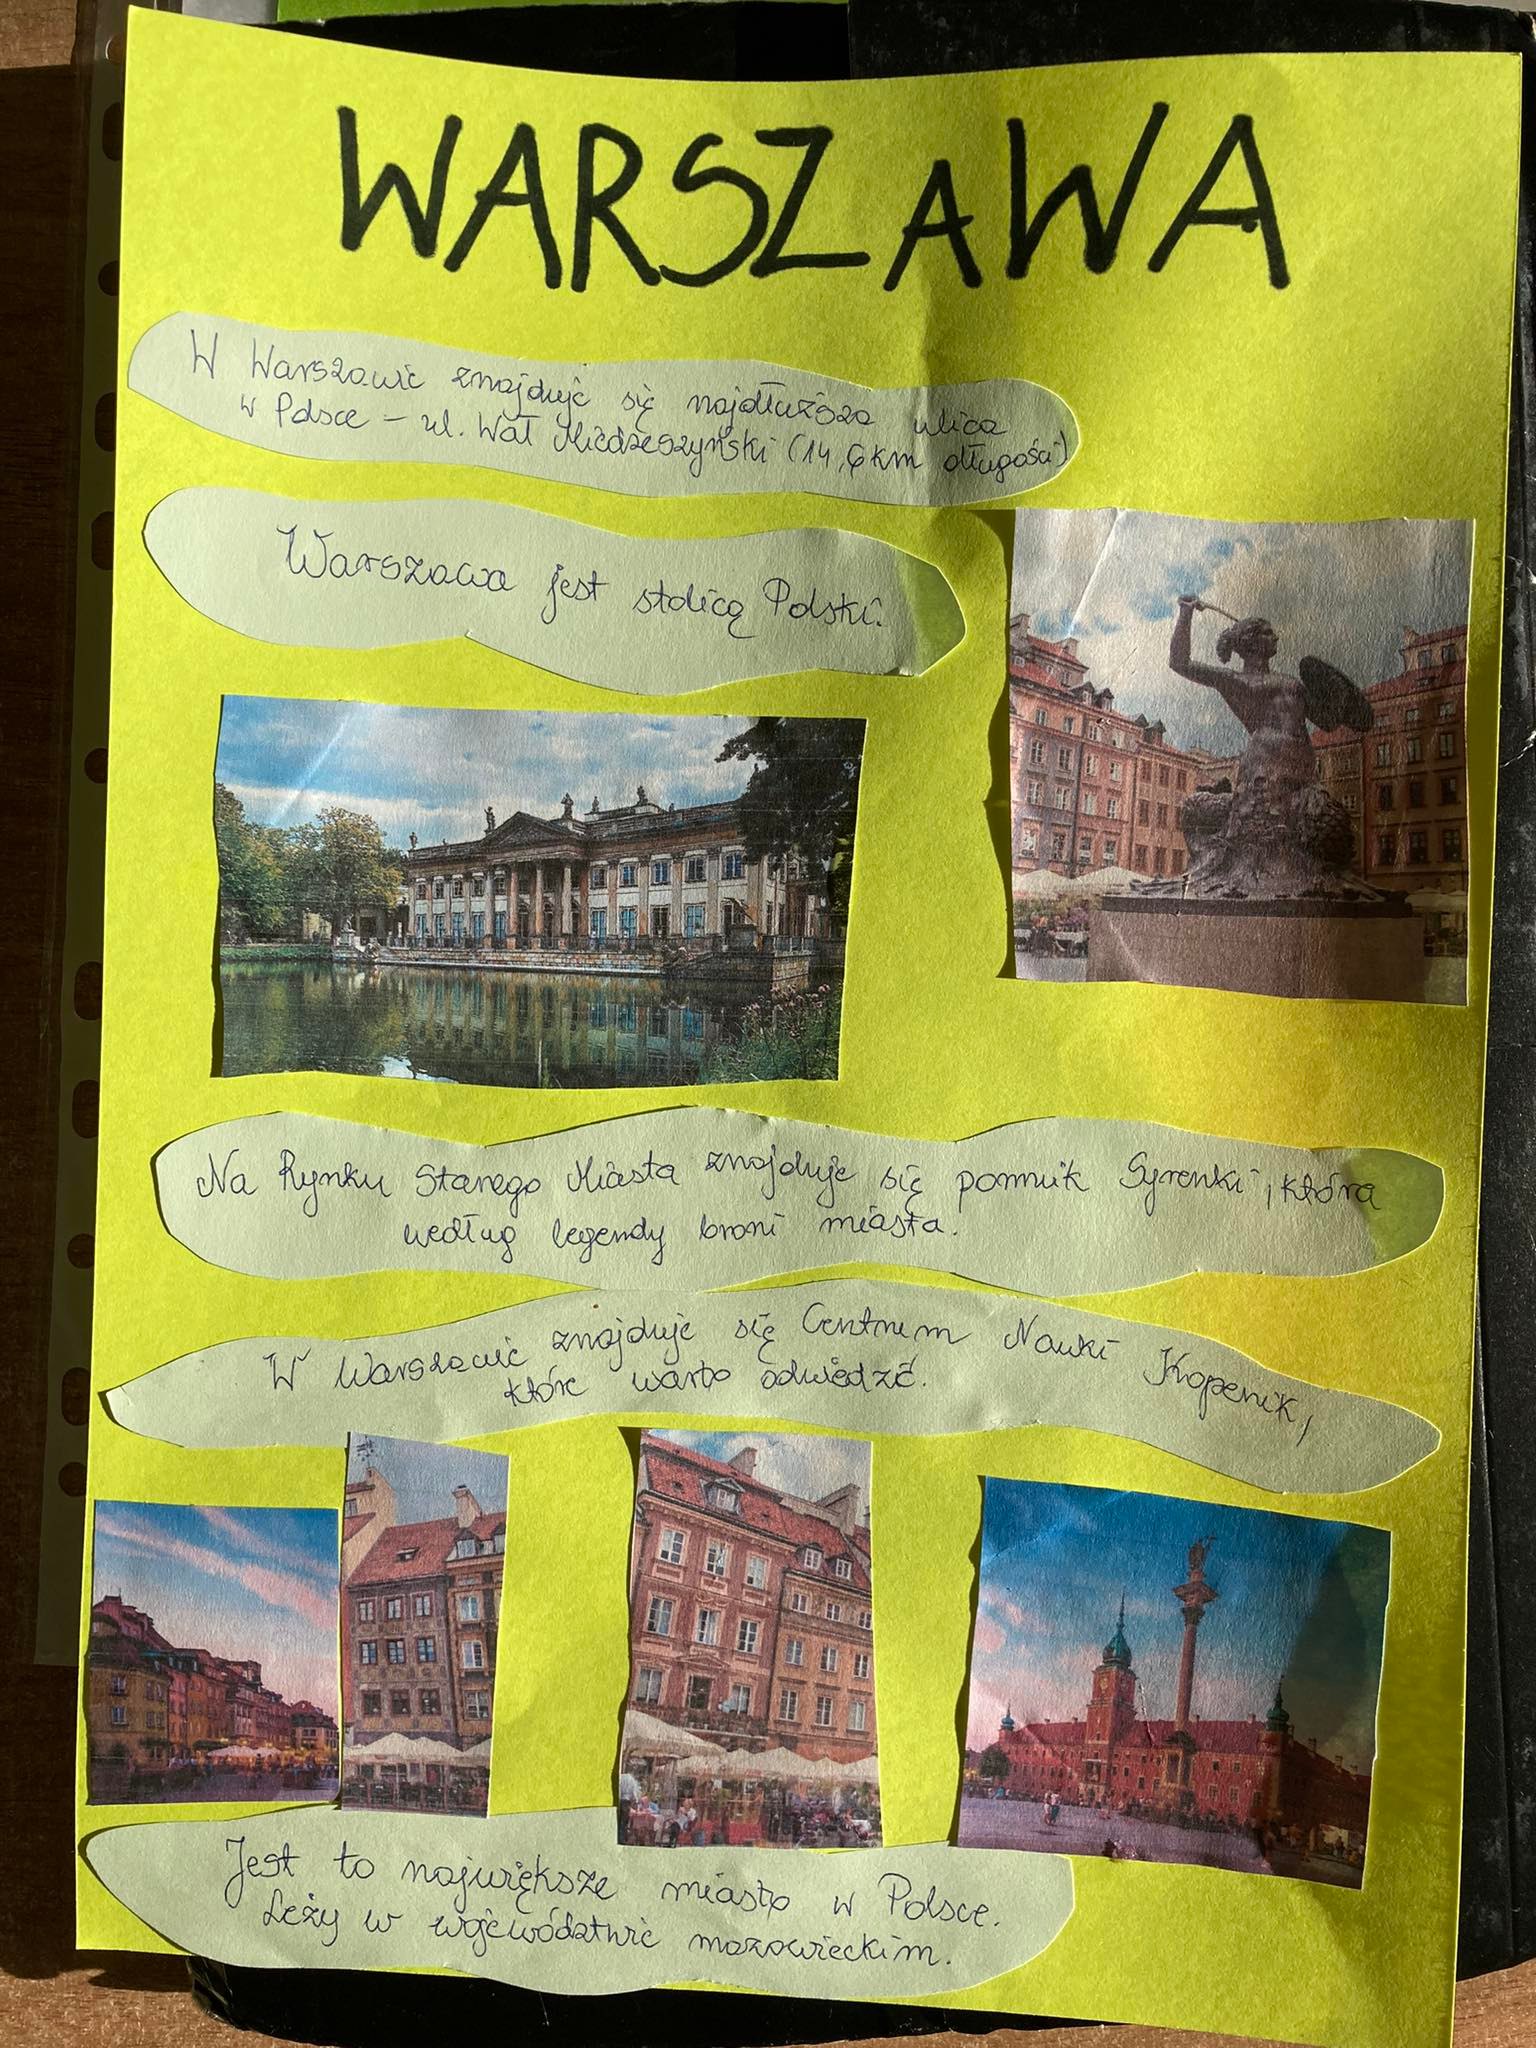 WARSZAWA
W Warszawie znajduje się najdłuższa ulica
w Polsce - ul. Wał Miedzeszyński (14,6 km długości)
Warszawa jest stolicą Polski.
Na Rynku Starego Miasta znajduje się pomnik Syrenki, która
według legendy broni miasta.
W Warszawie znajduje się Centrum Nauki Kopernik,
które warto odwiedzić.
Jest to największe miasto w Polsce.
Leży w województwie mazowieckim.